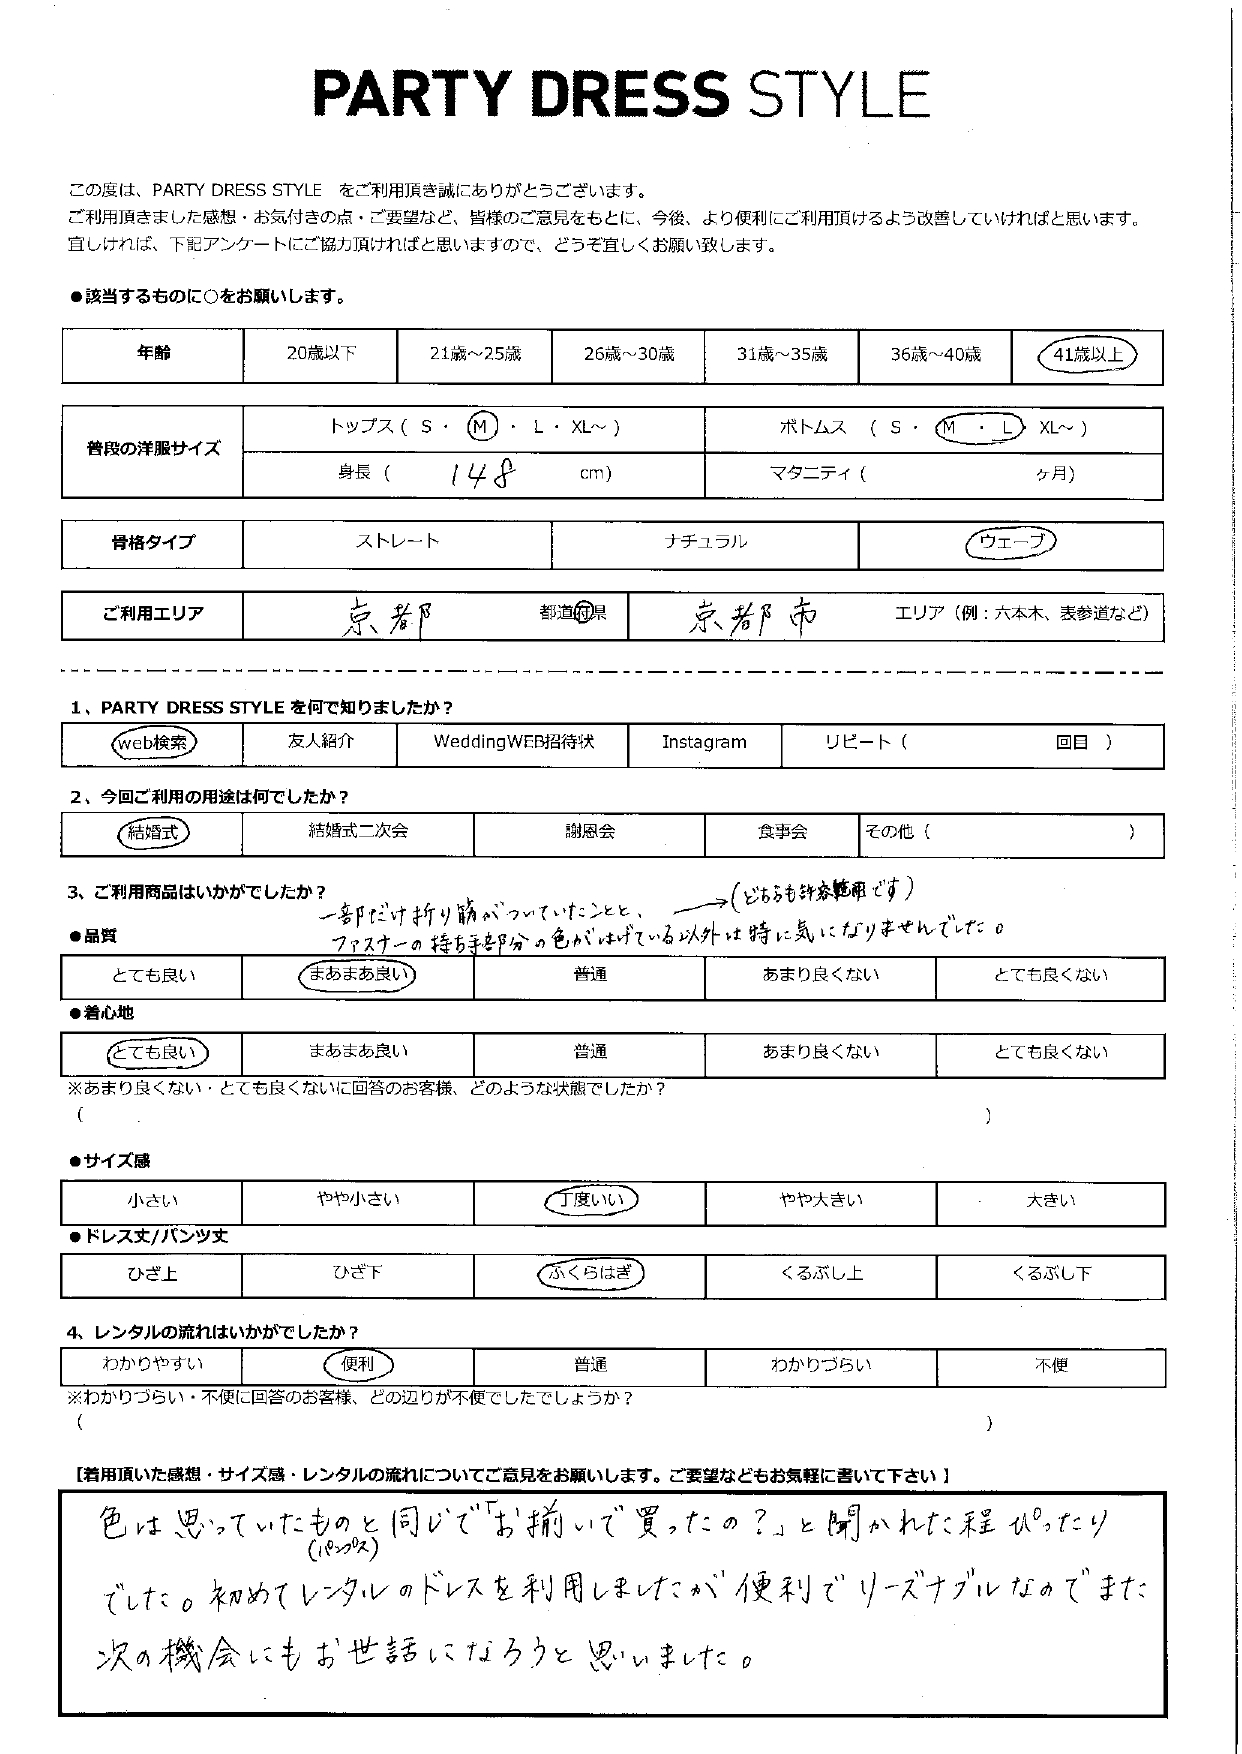 PARTY DRESS STYLE
この度は、PARTY DRESS STYLE をご利用頂き誠にありがとうございます。
ご利用頂きました感想・お気付きの点・ご要望など、皆様のご意見をもとに、今後、より便利にご利用頂けるよう改善していければと思います。
宜しければ、下記アンケートにご協力頂ければと思いますので、どうぞ宜しくお願い致します。
●該当するものに○をお願いします。
年齢 20歳以下 21歳～25歳 26歳～30歳 31歳～35歳 36歳～40歳 41歳以上
普段の洋服サイズ トップス ( S ・ M ・ L ・ XL～ ) ボトムス ( S ・ M ・ L ・ XL～ )
身長 ( 148 cm) マタニティ ( ヶ月)
骨格タイプ ストレート ナチュラル ウェーブ
ご利用エリア 京都 都道府県 京都市 エリア（例：六本木、表参道など）
1、PARTY DRESS STYLE を何で知りましたか？
web検索 友人紹介 WeddingWEB招待状 Instagram リピート ( 回目 )
2、今回ご利用の用途は何でしたか？
結婚式 結婚式二次会 謝恩会 食事会 その他 ( )
3、ご利用商品はいかがでしたか？
一部だけ折り筋がついていたことと、 →(どちらも許容範囲です)
●品質 ファスナーの持ち手部分の色がはげている以外は特に気になりませんでした。
とても良い まあまあ良い 普通 あまり良くない とても良くない
●着心地
とても良い まあまあ良い 普通 あまり良くない とても良くない
※あまり良くない・とても良くないに回答のお客様、どのような状態でしたか？
( )
●サイズ感
小さい やや小さい 丁度いい やや大きい 大きい
●ドレス丈/パンツ丈
ひざ上 ひざ下 ふくらはぎ くるぶし上 くるぶし下
4、レンタルの流れはいかがでしたか？
わかりやすい 便利 普通 わかりづらい 不便
※わかりづらい・不便に回答のお客様、どの辺りが不便でしたでしょうか？
( )
【着用頂いた感想・サイズ感・レンタルの流れについてご意見をお願いします。ご要望などもお気軽に書いて下さい 】
色は思っていたものと同じで「お揃いで買ったの？」と聞かれた程ぴったり
(パンプス)
でした。初めてレンタルのドレスを利用しましたが便利でリーズナブルなのでまた
次の機会にもお世話になろうと思いました。